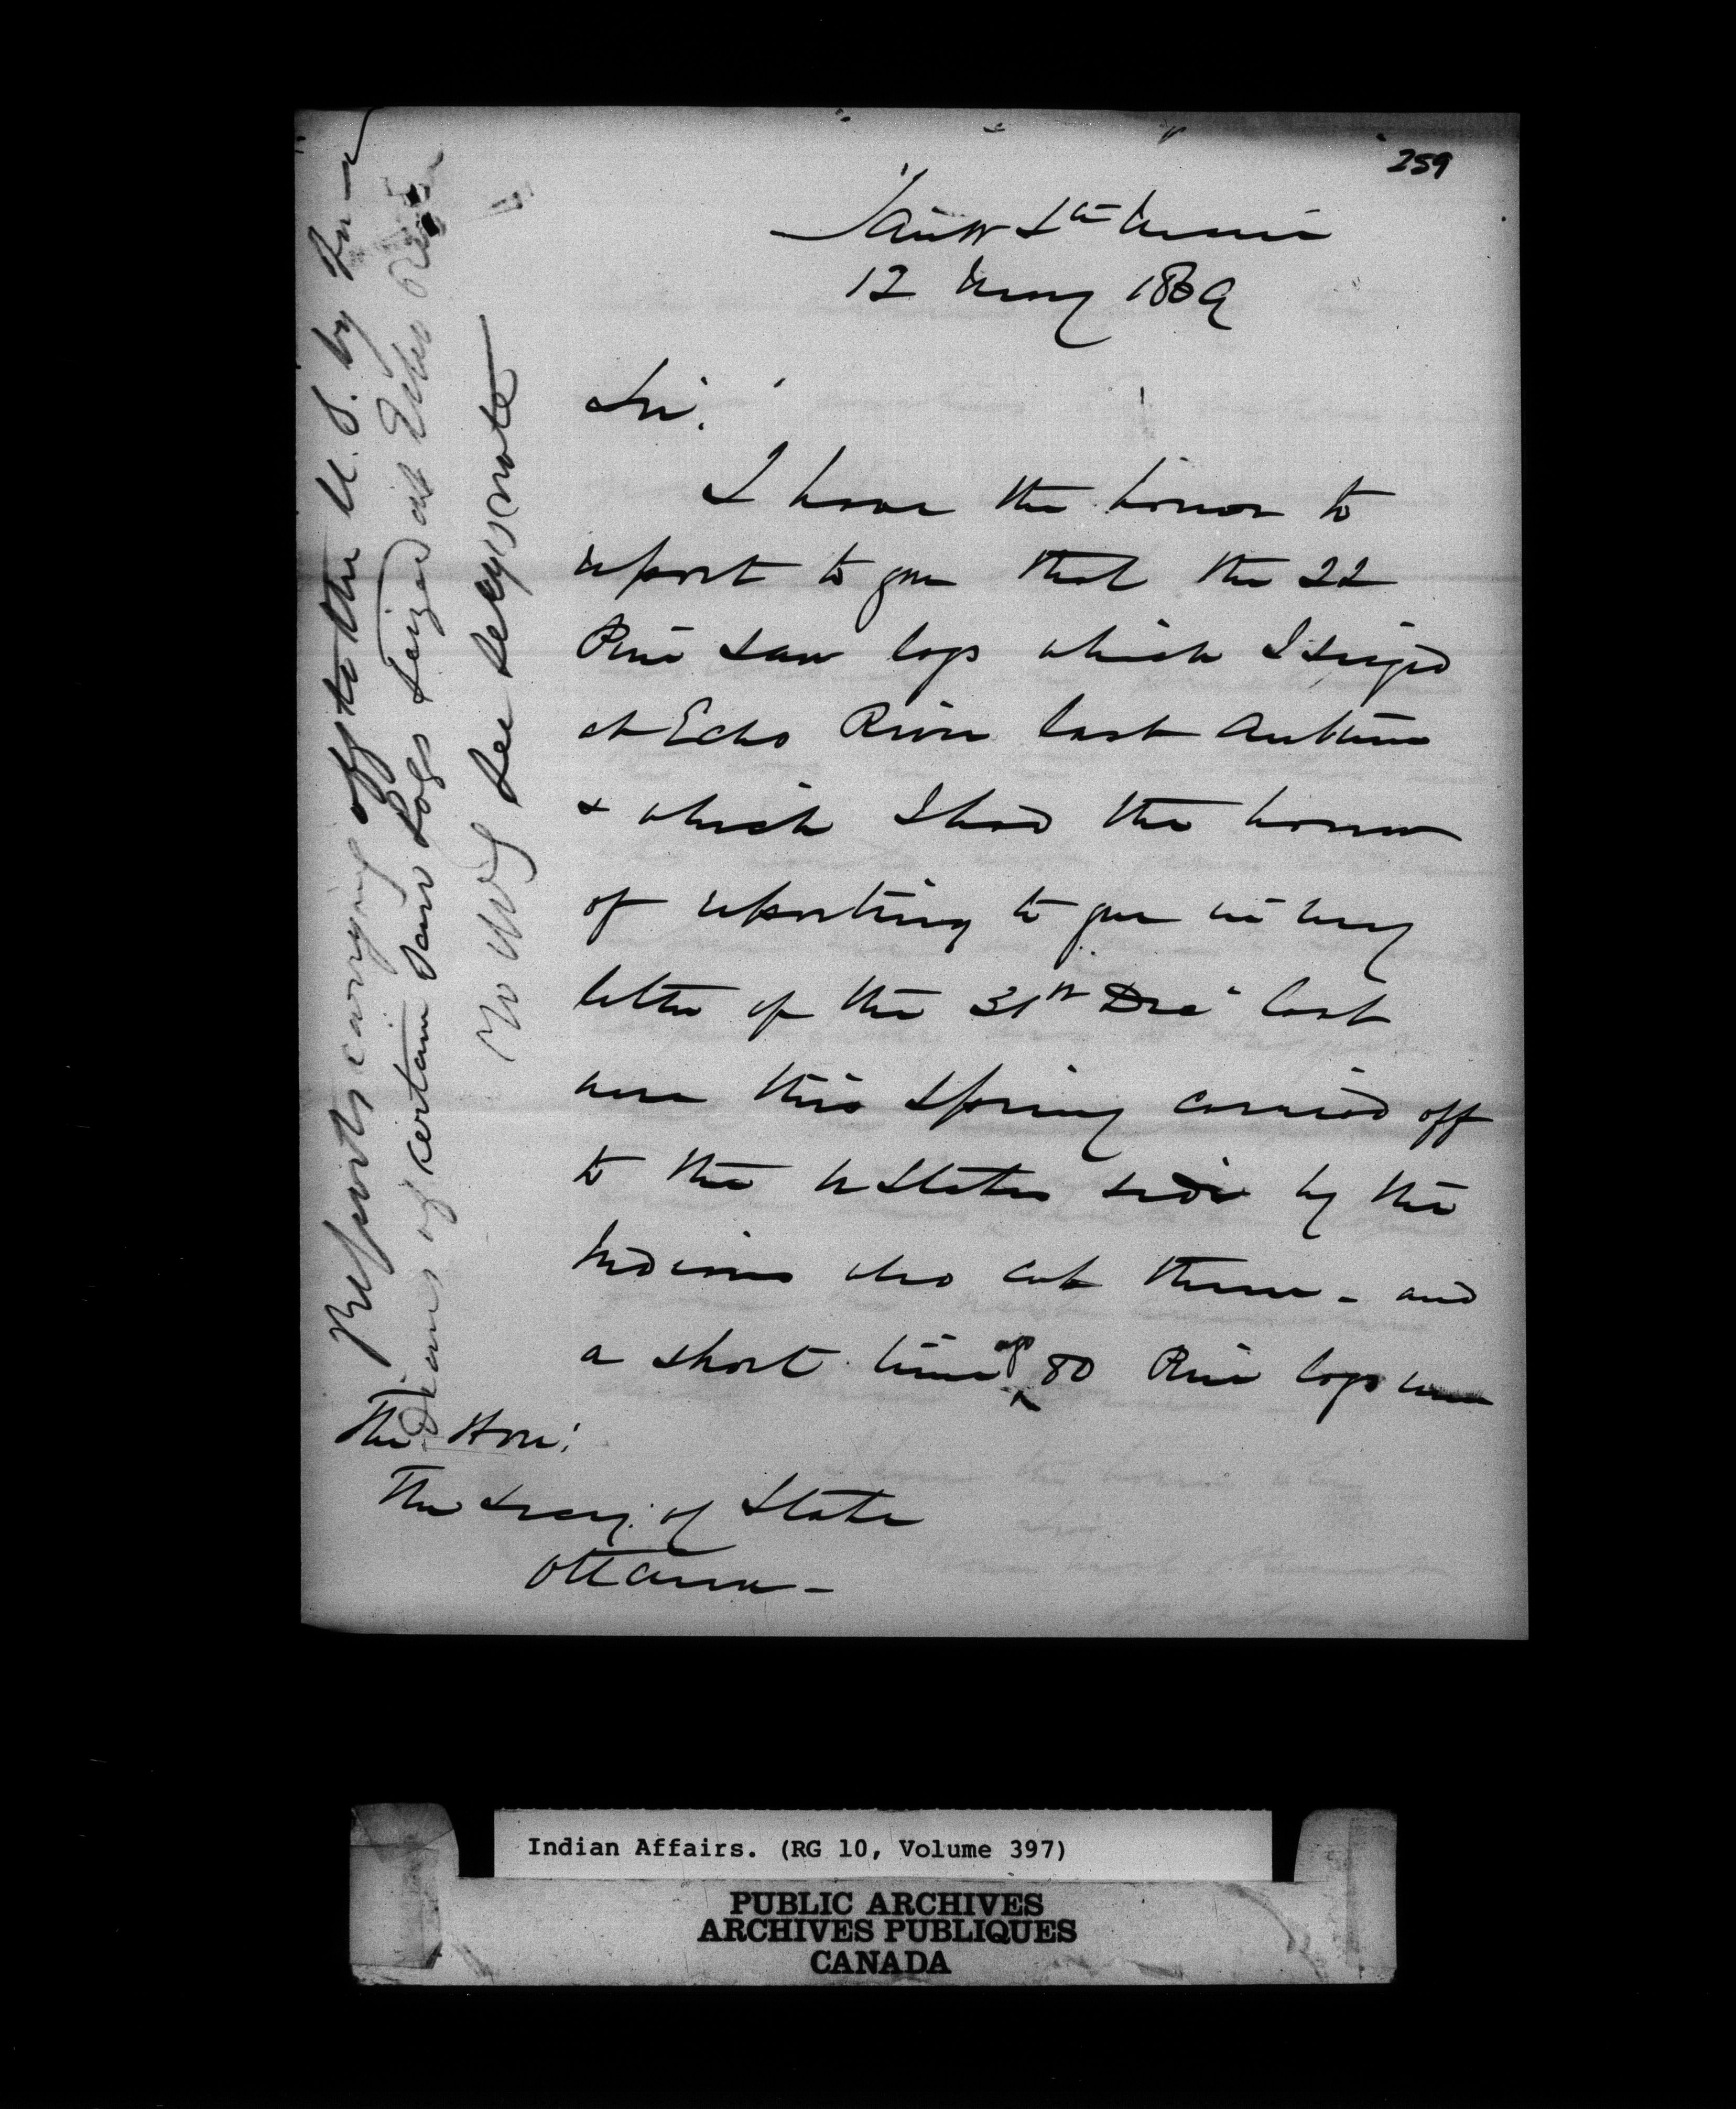 259
Sault Ste Marie
12 May 1869
Sir,
I have the honor to
report to you that the 22
Pine saw logs which I seized
at Echo River last Autumn
& which I had the honor
of reporting to you in my
letter of the 31st Dec last
were this Spring carried off
to the U States side by the
Indians who cut them - and
a short time 80 Pine logs were
The Hon:
The Secy. of State
Ottawa -
Reports carrying off to the U. S. by In-
dians of certain Saw Logs seized at Echo River
See Secy's note
Indian Affairs. (RG 10, Volume 397)
PUBLIC ARCHIVES
ARCHIVES PUBLIQUES
CANADA